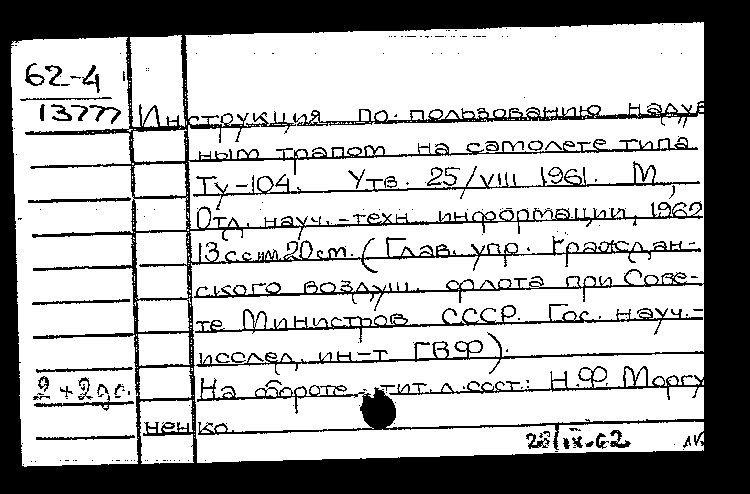 62-4
13777 Инструкция по пользованию надув
ным трапом на самолете типа
Ту-104. Утв. 25/VIII 1961. М,
Отд. науч.-техн. информации, 1962
13 с. 20 см. (Глав. упр. Граждан-
ского воздуш. флота при Сове-
те Министров СССР. Гос. науч.-
исслед. ин-т ГВФ).
2+2до. На обороте тит. л. сост.: Н.Ф. Моргу
ненко.
28/IX-62